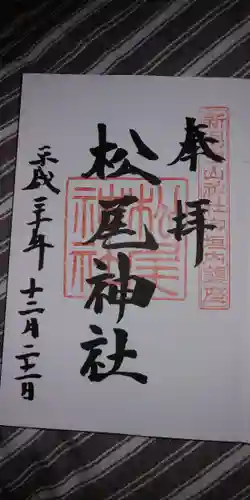 奉拝
松尾神社
平成三十年
十二月二十一日
松尾神社